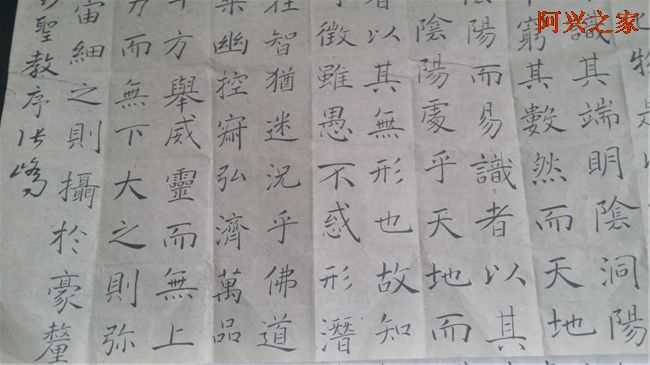 阿兴之家
物是以
識其端明陰洞陽
窮其數然而天地
陰陽而易識者以其
陰陽處乎天地而
者以其無形也故知
徵雖愚不惑形潛
在智猶迷況乎佛道
乘幽控寂弘濟萬品
十方舉威靈而無上
力而無下大之則弥
宙細之則攝於豪釐
聖教序